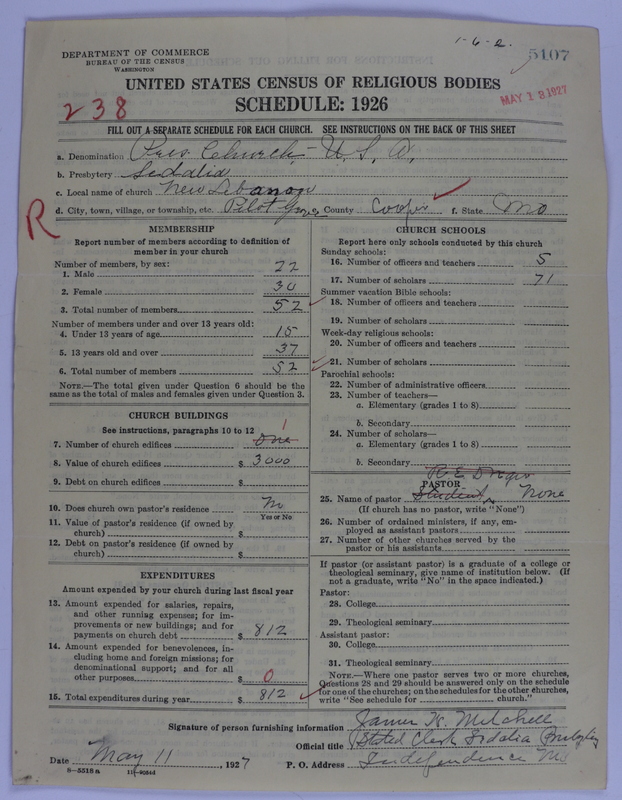 1-6-2.
5107
DEPARTMENT OF COMMERCE
BUREAU OF THE CENSUS
WASHINGTON
UNITED STATES CENSUS OF RELIGIOUS BODIES
SCHEDULE: 1926
MAY 18 1927
238
FILL OUT A SEPARATE SCHEDULE FOR EACH CHURCH. SEE INSTRUCTIONS ON THE BACK OF THIS SHEET
a. Denomination Pres. Church - U. S. A.
b. Presbytery Sedalia
c. Local name of church New Lebanon
d. City, town, village, or township, etc. Pilot Grove County Cooper f. State Mo
R
MEMBERSHIP
Report number of members according to definition of
member in your church
Number of members, by sex:
1. Male 22
2. Female 30
3. Total number of members 52
Number of members under and over 13 years old:
4. Under 13 years of age 15
5. 13 years old and over 37
6. Total number of members 52
NOTE.—The total given under Question 6 should be the
same as the total of males and females given under Question 3.
CHURCH BUILDINGS
See instructions, paragraphs 10 to 12
7. Number of church edifices One 1
8. Value of church edifices $ 3000
9. Debt on church edifices $
10. Does church own pastor's residence No
Yes or No
11. Value of pastor's residence (if owned by
church) $
12. Debt on pastor's residence (if owned by
church) $
EXPENDITURES
Amount expended by your church during last fiscal year
13. Amount expended for salaries, repairs,
and other running expenses; for im-
provements or new buildings; and for
payments on church debt $ 812
14. Amount expended for benevolences, in-
cluding home and foreign missions; for
denominational support; and for all
other purposes $ 0
15. Total expenditures during year $ 812
CHURCH SCHOOLS
Report here only schools conducted by this church
Sunday schools:
16. Number of officers and teachers 5
17. Number of scholars 71
Summer vacation Bible schools:
18. Number of officers and teachers
19. Number of scholars
Week-day religious schools:
20. Number of officers and teachers
21. Number of scholars
Parochial schools:
22. Number of administrative officers
23. Number of teachers—
a. Elementary (grades 1 to 8)
b. Secondary
24. Number of scholars—
a. Elementary (grades 1 to 8)
b. Secondary
R. E.
PASTOR
25. Name of pastor Student None
(If church has no pastor, write "None")
26. Number of ordained ministers, if any, em-
ployed as assistant pastors
27. Number of other churches served by the
pastor or his assistants
If pastor (or assistant pastor) is a graduate of a college or
theological seminary, give name of institution below. (If
not a graduate, write "No" in the space indicated.)
Pastor:
28. College
29. Theological seminary
Assistant pastor:
30. College
31. Theological seminary
NOTE.—Where one pastor serves two or more churches,
Questions 28 and 29 should be answered only on the schedule
for one of the churches; on the schedules for the other churches,
write "See schedule for church."
Signature of person furnishing information James K. Mitchell
Official title Stated Clerk Sedalia Presbytery
Date May 11, 1927 P. O. Address Independence Mo
8—5518a